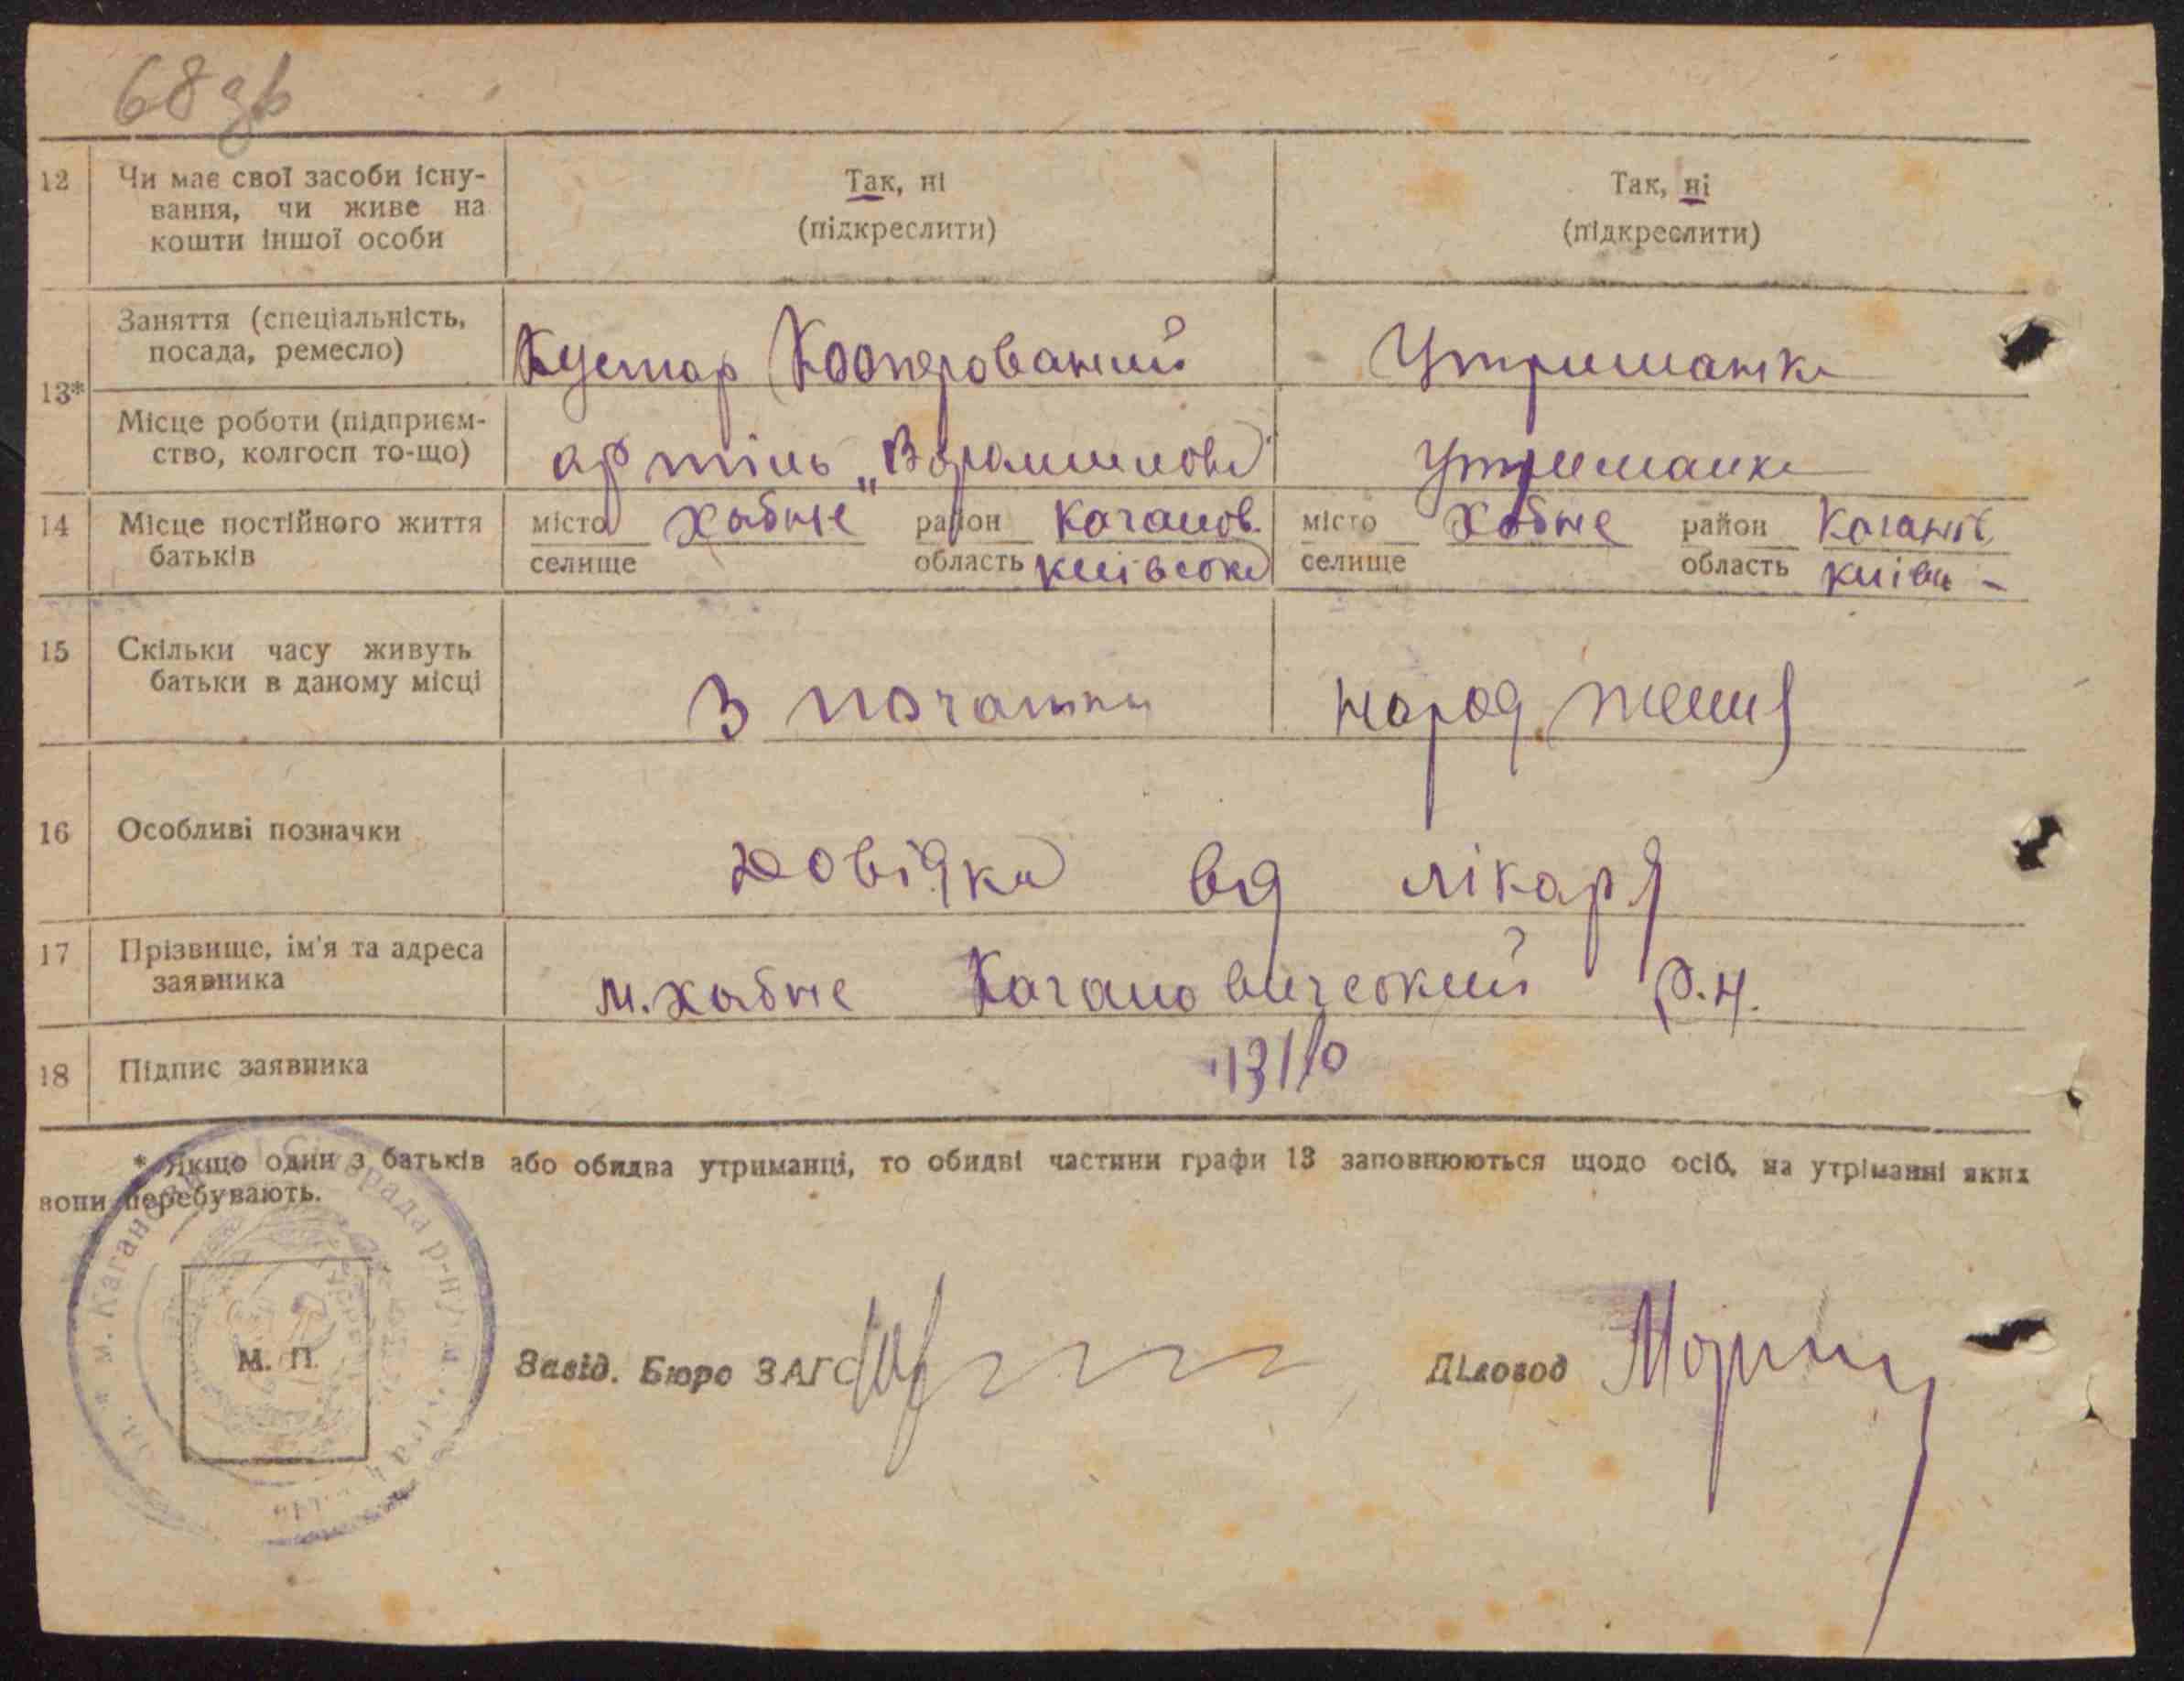 68 зв
12 Чи має свої засоби існу- Так, ні Так, ні
вання, чи живе на (підкреслити) (підкреслити)
кошти іншої особи
13* Заняття (спеціальність, Кустар Кооперований Утриманка
посада, ремесло)
Місце роботи (підприєм- артіль „Ворошилова" Утриманка
ство, колгосп то-що)
14 Місце постійного життя місто Хабне район Каганов. місто Хабне район Каганов.
батьків селище область Київська селище область Київськ
15 Скільки часу живуть З початку народження
батьки в даному місці
16 Особливі позначки Довідка від лікаря
17 Прізвище, ім'я та адреса м. Хабне Кагановичеський р.н.
заявника
18 Підпис заявника
* Якщо один з батьків або обидва утриманці, то обидві частини графи 13 заповнюються щодо осіб, на утріманні яких
вони перебувають.
м. Каганов Сільрада р-ну
М. П. Завід. Бюро ЗАГС Діловод